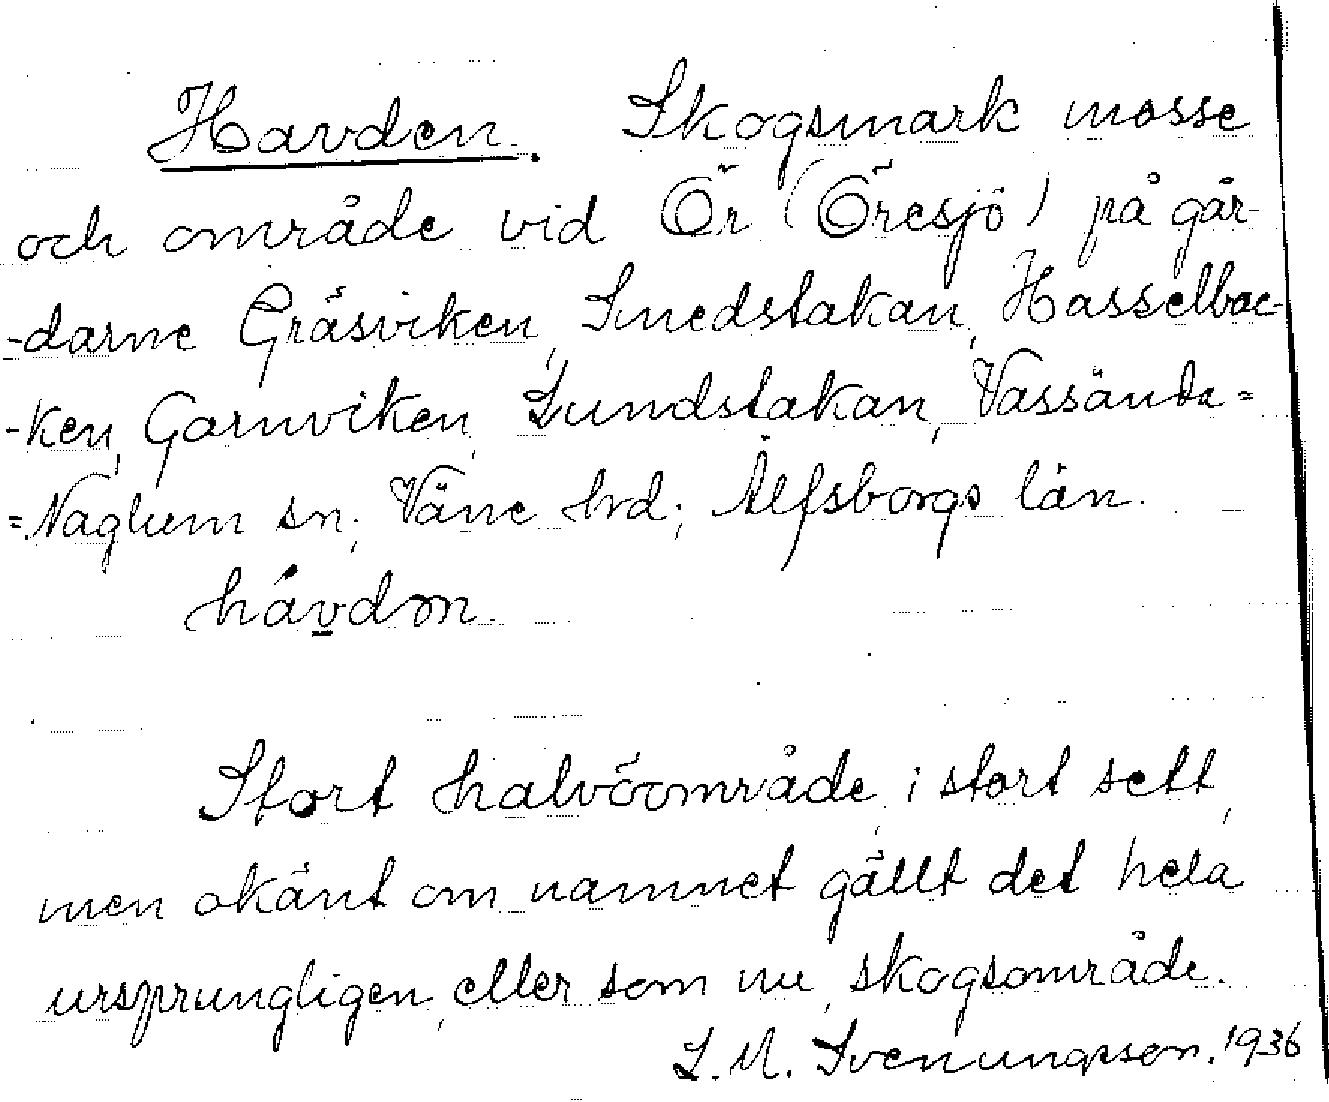 Havden. Skogsmark mosse
och område vid Ör (Öresjö) på går-
-darne Gräsviken, Smedstakan, Hasselbac-
-ken, Garnviken, Lundstakan, Vassända=
=Naglum sn; Väne hrd; Älfsborgs län.
hávdn.
Stort halvöområde, i stort sett,
men okänt om namnet gällt det hela
ursprungligen, eller som nu, skogsområde.
S. M. Svenungsson. 1936